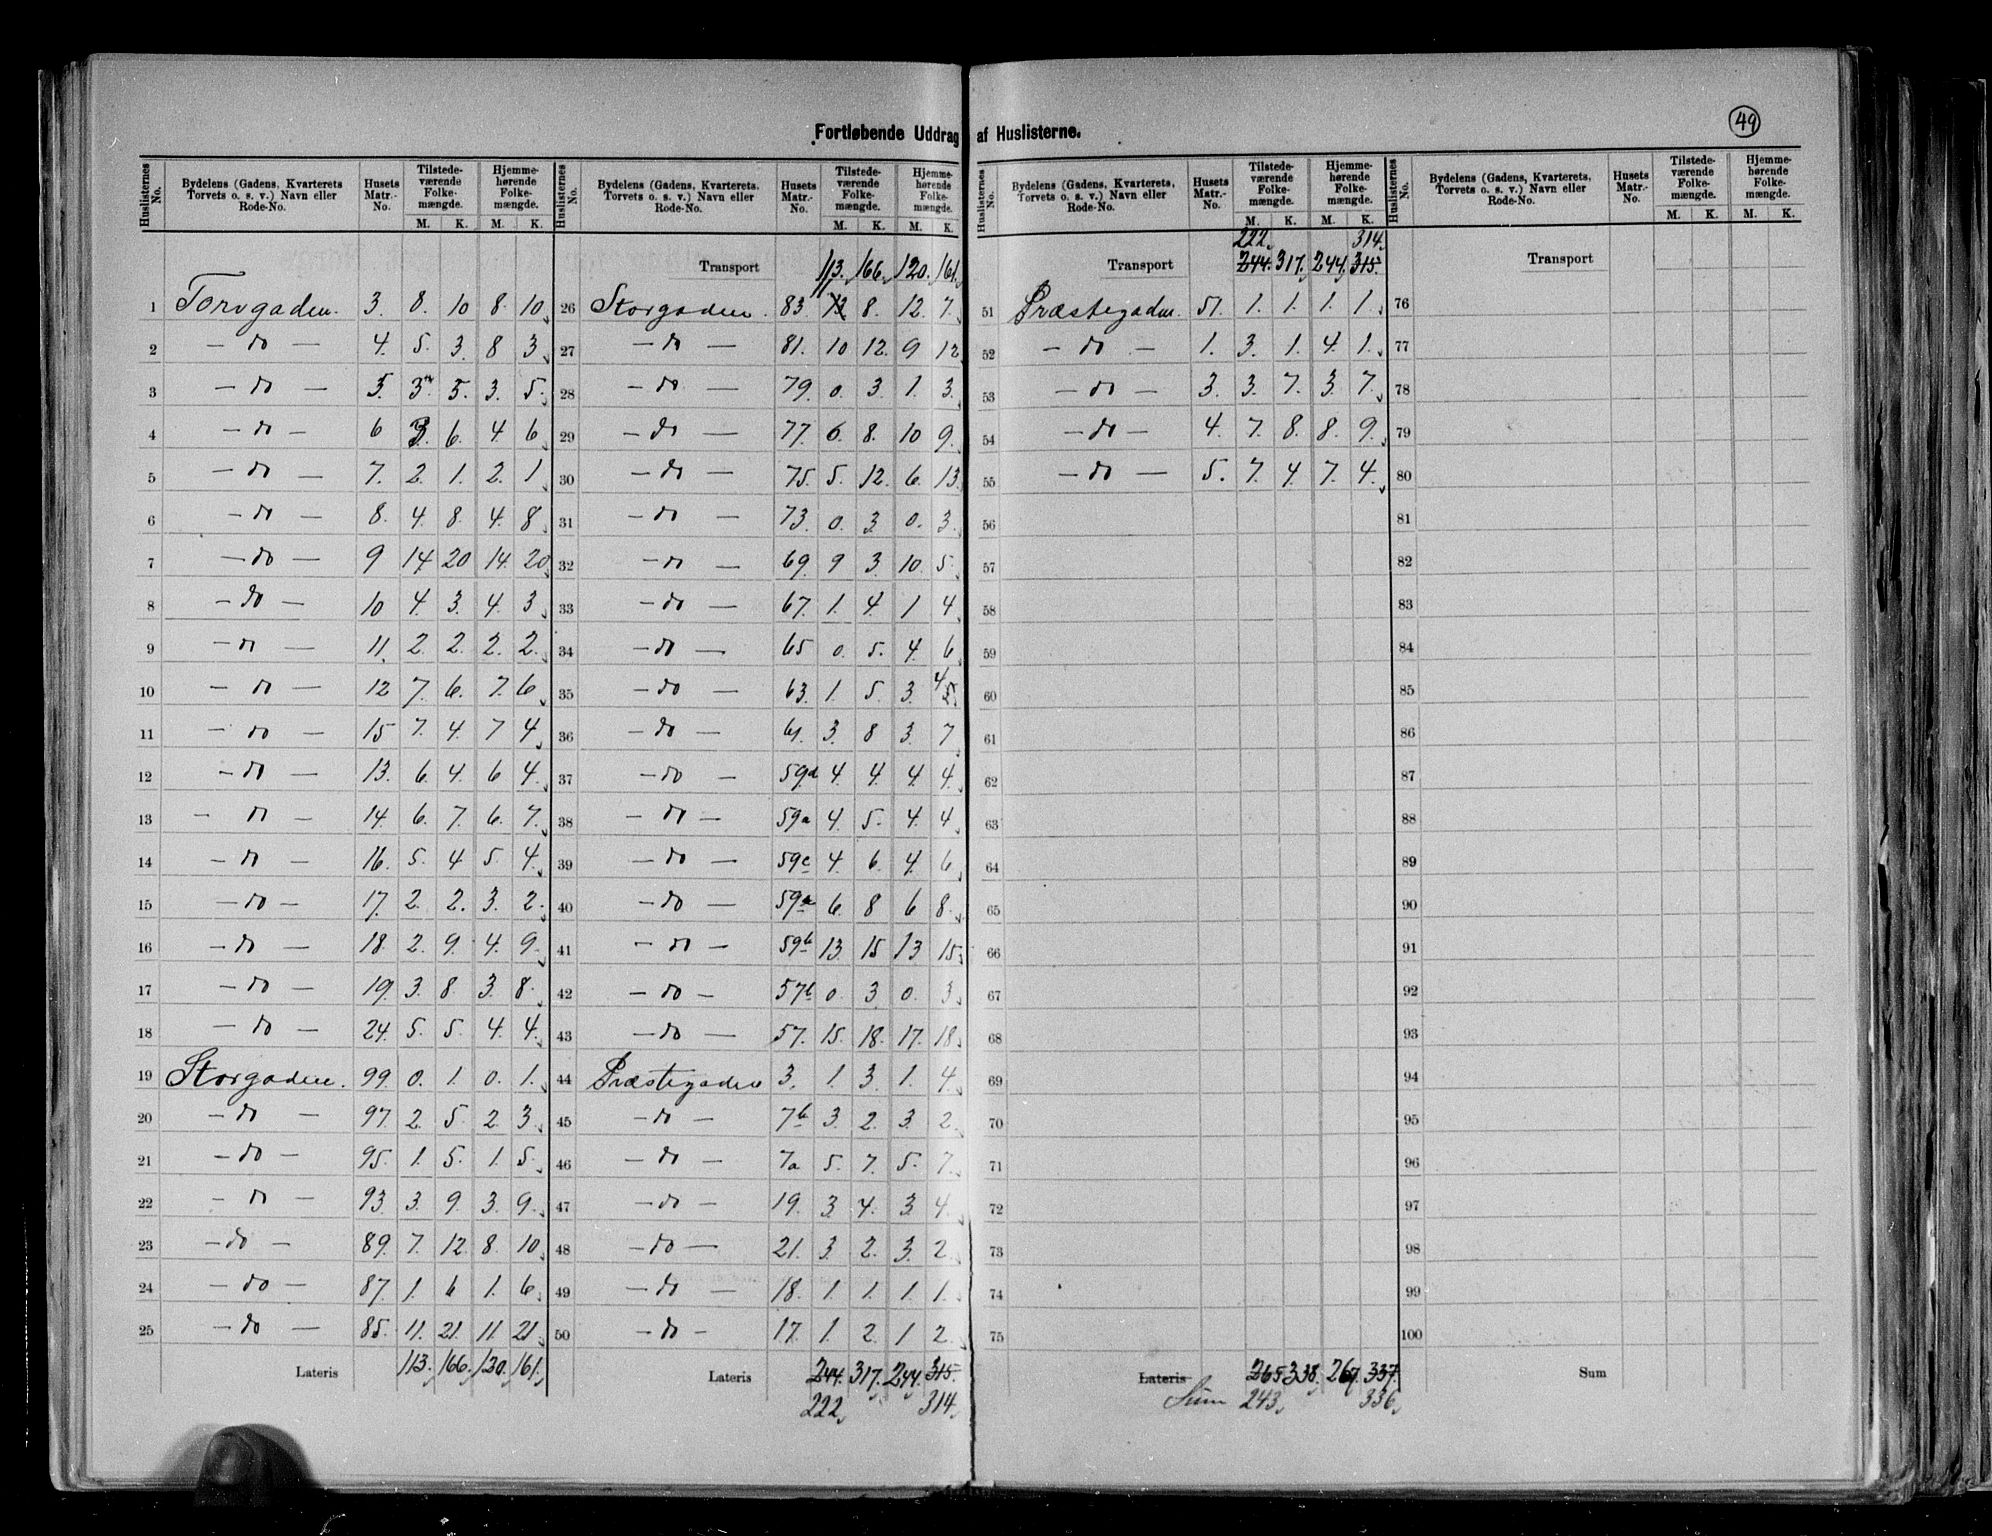 Fortløbende Uddrag af Huslisterne.
49
Huslisternes No. Bydelens (Gadens, Kvarterets, Torvets o. s. v.) Navn eller Rode-No. Husets Matr.-No. Tilstedeværende Folkemængde. M. K. Hjemmehørende Folkemængde. M. K.
1 Torvgaden. 3. 8. 10 8. 10
2 - do - 4. 5. 3. 8 3.
3 - do - 5. 3. 5. 3. 5.
4 - do - 6 3. 6. 4 6
5 - do - 7. 2. 1. 2. 1
6 - do - 8. 4. 8. 4. 8
7 - do - 9 14 20 14. 20
8 - do - 10 4. 3. 4. 3
9 - do - 11. 2. 2. 2. 2.
10 - do - 12 7. 6. 7. 6
11 - do - 15 7. 4. 7 4
12 - do - 13. 6. 4. 6 4.
13 - do - 14. 6. 7. 6. 7.
14 - do - 16. 5. 4 5. 4.
15 - do - 17. 2. 2. 3. 2.
16 - do - 18. 2. 9. 4. 9.
17 - do - 19. 3. 8. 3. 8.
18 - do - 24. 5. 5. 4. 4.
19 Storgaden. 99. 0. 1. 0. 1.
20 - do - 97. 2. 5. 2. 3.
21 - do - 95. 1. 5. 1. 5.
22 - do - 93. 3. 9. 3. 9.
23 - do - 89. 7. 12. 8. 10
24 - do - 87. 1. 6 1. 6
25 - do - 85. 11. 21. 11. 21
Lateris 113. 166. 120. 161.
Huslisternes No. Bydelens (Gadens, Kvarterets, Torvets o. s. v.) Navn eller Rode-No. Husets Matr.-No. Tilstedeværende Folkemængde. M. K. Hjemmehørende Folkemængde. M. K.
Transport 113. 166. 120. 161.
26 Storgaden. 83 8. 12. 7.
27 - do - 81. 10 12. 9 12.
28 - do - 79. 0. 3 1. 3.
29 - do - 77. 6. 8. 10 9.
30 - do - 75. 5. 12. 6. 13.
31 - do - 73. 0. 3 0. 3.
32 - do - 69. 9 3. 10. 5.
33 - do - 67. 1. 4. 1 4
34 - do - 65 0. 5. 4. 6
35 - do - 63. 1. 5 3. 4 5.
36 - do - 61. 3. 8 3. 7
37 - do - 59d 4. 4. 4. 4.
38 - do - 59a 4. 5. 4. 4
39 - do - 59c 4. 6. 4. 6
40 - do - 59a 6. 8 6 8
41 - do - 59b 13. 15 13 15
42 - do - 57b 0. 3 0. 3
43 - do - 57. 15. 18. 17. 18
44 Præstegaden 3. 1. 3. 1. 4.
45 - do - 7b 3. 2. 3. 2.
46 - do - 7a 5. 7. 5. 7.
47 - do - 19. 3. 4. 3. 4.
48 - do - 21. 3. 2. 3. 2.
49 - do - 18. 1. 1. 1. 1.
50 - do - 17. 1. 2. 1 2.
Lateris 244. 317. 244. 315.
222 314.
Huslisternes No. Bydelens (Gadens, Kvarterets, Torvets o. s. v.) Navn eller Rode-No. Husets Matr.-No. Tilstedeværende Folkemængde. M. K. Hjemmehørende Folkemængde. M. K.
222. 314.
Transport 244. 317. 244. 315.
51 Præstegaden. 51. 1. 1. 1. 1.
52 - do - 1. 3. 1. 4. 1.
53 - do - 3. 3. 7. 3. 7.
54 - do - 4. 7. 8. 8. 9.
55 - do - 5. 7. 4. 7. 4.
56
57
58
59
60
61
62
63
64
65
66
67
68
69
70
71
72
73
74
75
Lateris 265 338. 267. 337.
Sum 243. 336.
Huslisternes No. Bydelens (Gadens, Kvarterets, Torvets o. s. v.) Navn eller Rode-No. Husets Matr.-No. Tilstedeværende Folkemængde. M. K. Hjemmehørende Folkemængde. M. K.
Transport
76
77
78
79
80
81
82
83
84
85
86
87
88
89
90
91
92
93
94
95
96
97
98
99
100
Sum